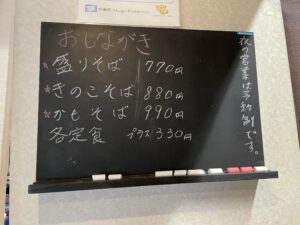 おしながき
★盛りそば 770円
★きのこそば 880円
★かもそば 990円
各定食 プラス330円
夜の営業は予約制です。